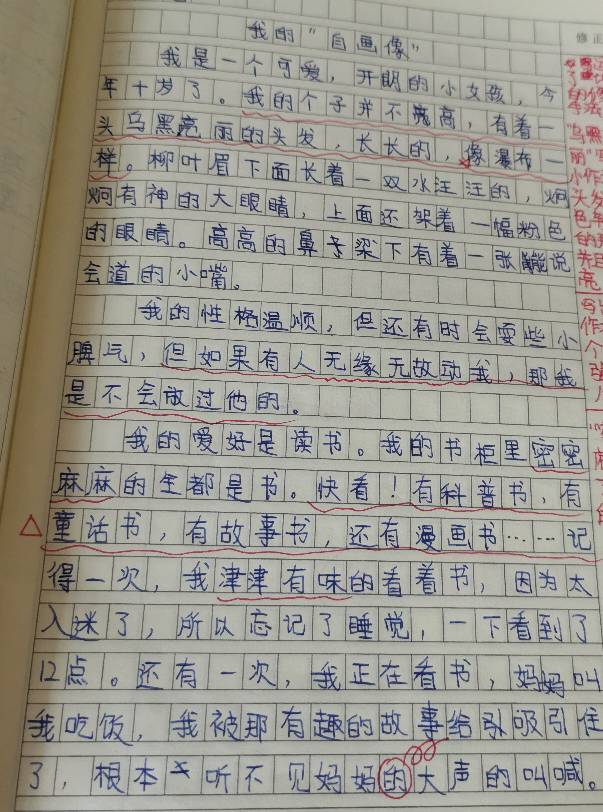 我的“自画像”
我是一个可爱，开朗的小女孩，今
年十岁了。我的个子并不高，有着一
头乌黑亮丽的头发，长长的，像瀑布一
样。柳叶眉下面长着一双水汪汪的，炯
炯有神的大眼睛，上面还架着一幅粉色
的眼睛。高高的鼻子梁下有着一张能说
会道的小嘴。
我的性格温顺，但还有时会耍些小
脾气，但如果有人无缘无故动我，那我
是不会放过他的。
我的爱好是读书。我的书柜里密密
麻麻的全都是书。快看！有科普书，有
童话书，有故事书，还有漫画书……记
得一次，我津津有味的看着书，因为太
入迷了，所以忘记了睡觉，一下看到了
12点。还有一次，我正在看书，妈妈叫
我吃饭，我被那有趣的故事给引吸引住
了，根本听不见妈妈的大声的叫喊。
修正